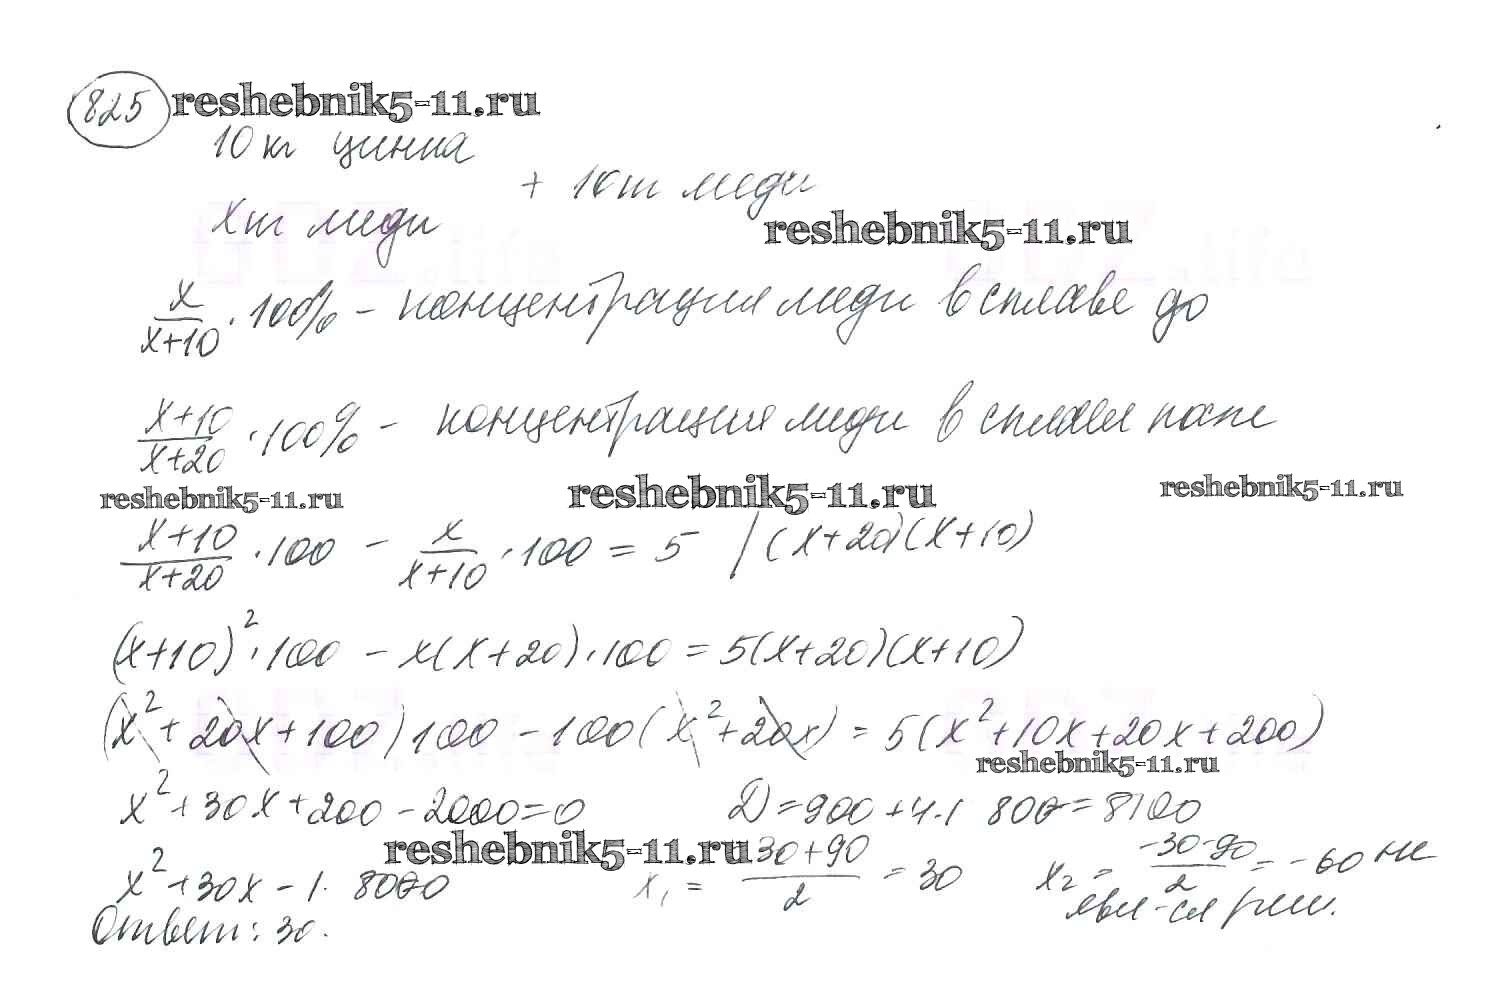 825 reshebnik5-11.ru
10 кг цинка
+ 10 т меди
x т меди
reshebnik5-11.ru
x/(x+10) · 100% - концентрация меди в сплаве до
(x+10)/(x+20) · 100% - концентрация меди в сплаве после
reshebnik5-11.ru reshebnik5-11.ru reshebnik5-11.ru
(x+10)/(x+20) · 100 - x/(x+10) · 100 = 5 | (x+20)(x+10)
(x+10)² · 100 - x(x+20) · 100 = 5(x+20)(x+10)
(x² + 20x + 100)100 - 100(x² + 20x) = 5(x² + 10x + 20x + 200)
reshebnik5-11.ru
x² + 30x + 200 - 2000 = 0 D = 900 + 4·1 800 = 8100
reshebnik5-11.ru
x² + 30x - 1· 800 0 x₁ = (30+90)/2 = 30 x₂ = (-30-90)/2 = -60 не
явл-ся реш.
Ответ: 30.